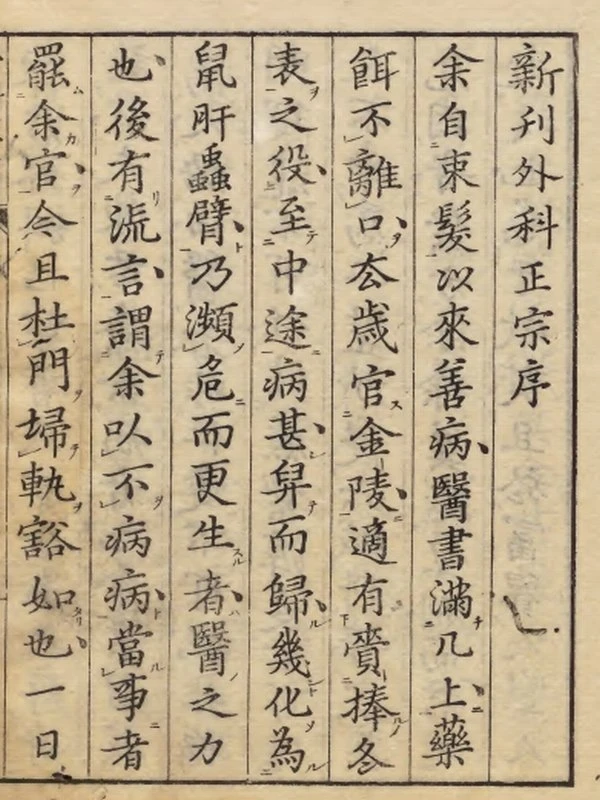 新刋外科正宗序
余自束髮以來善病醫書滿几上藥
餌不離口厺歲官金陵適有賫捧冬
表之役至中途病甚舁而歸幾化為
鼠肝蟲臂乃瀕危而更生者醫之力
也後有流言謂余以不病病當事者
罷余官今且杜門埽軌豁如也一日